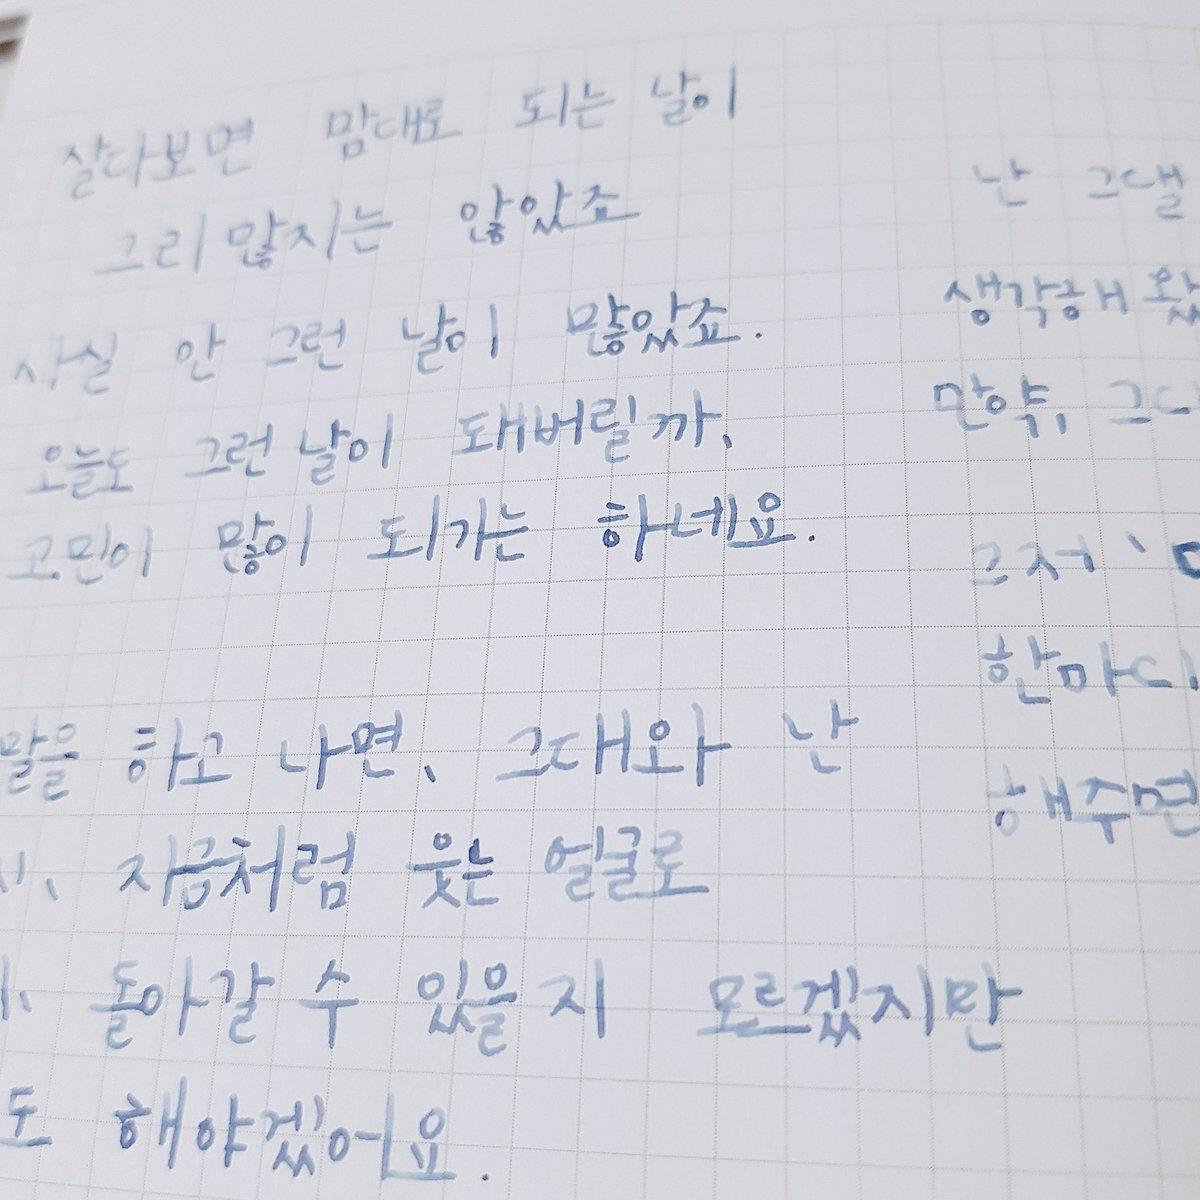 살다보면 맘대로 되는 날이
그리 많지는 않았죠
사실 안 그런 날이 많았죠.
오늘도 그런 날이 돼버릴까,
고민이 많이 되기는 하네요.
말을 하고 나면, 그대와 난
지금처럼 웃는 얼굴로
돌아갈 수 있을지 모르겠지만
도 해야겠어요.
난 그댈
생각해 왔
만약, 그
그저
한마디
해주면